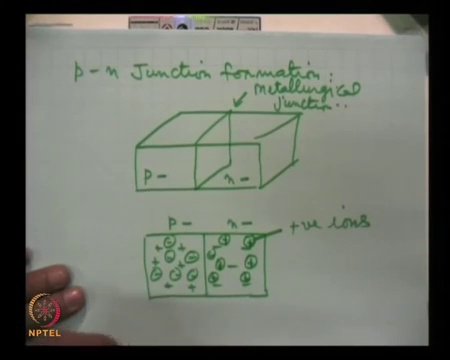 p-n Junction formation:
metallurgical
junction..
p- n-
p- n-
+ve ions
NPTEL